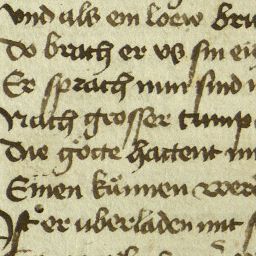 vnd als ein loew
do brach er vß sin
Er sprach nun sind
Nach grosser
die goͤtte hattent
Einen kuͤnnen
Ist er uberladen mit